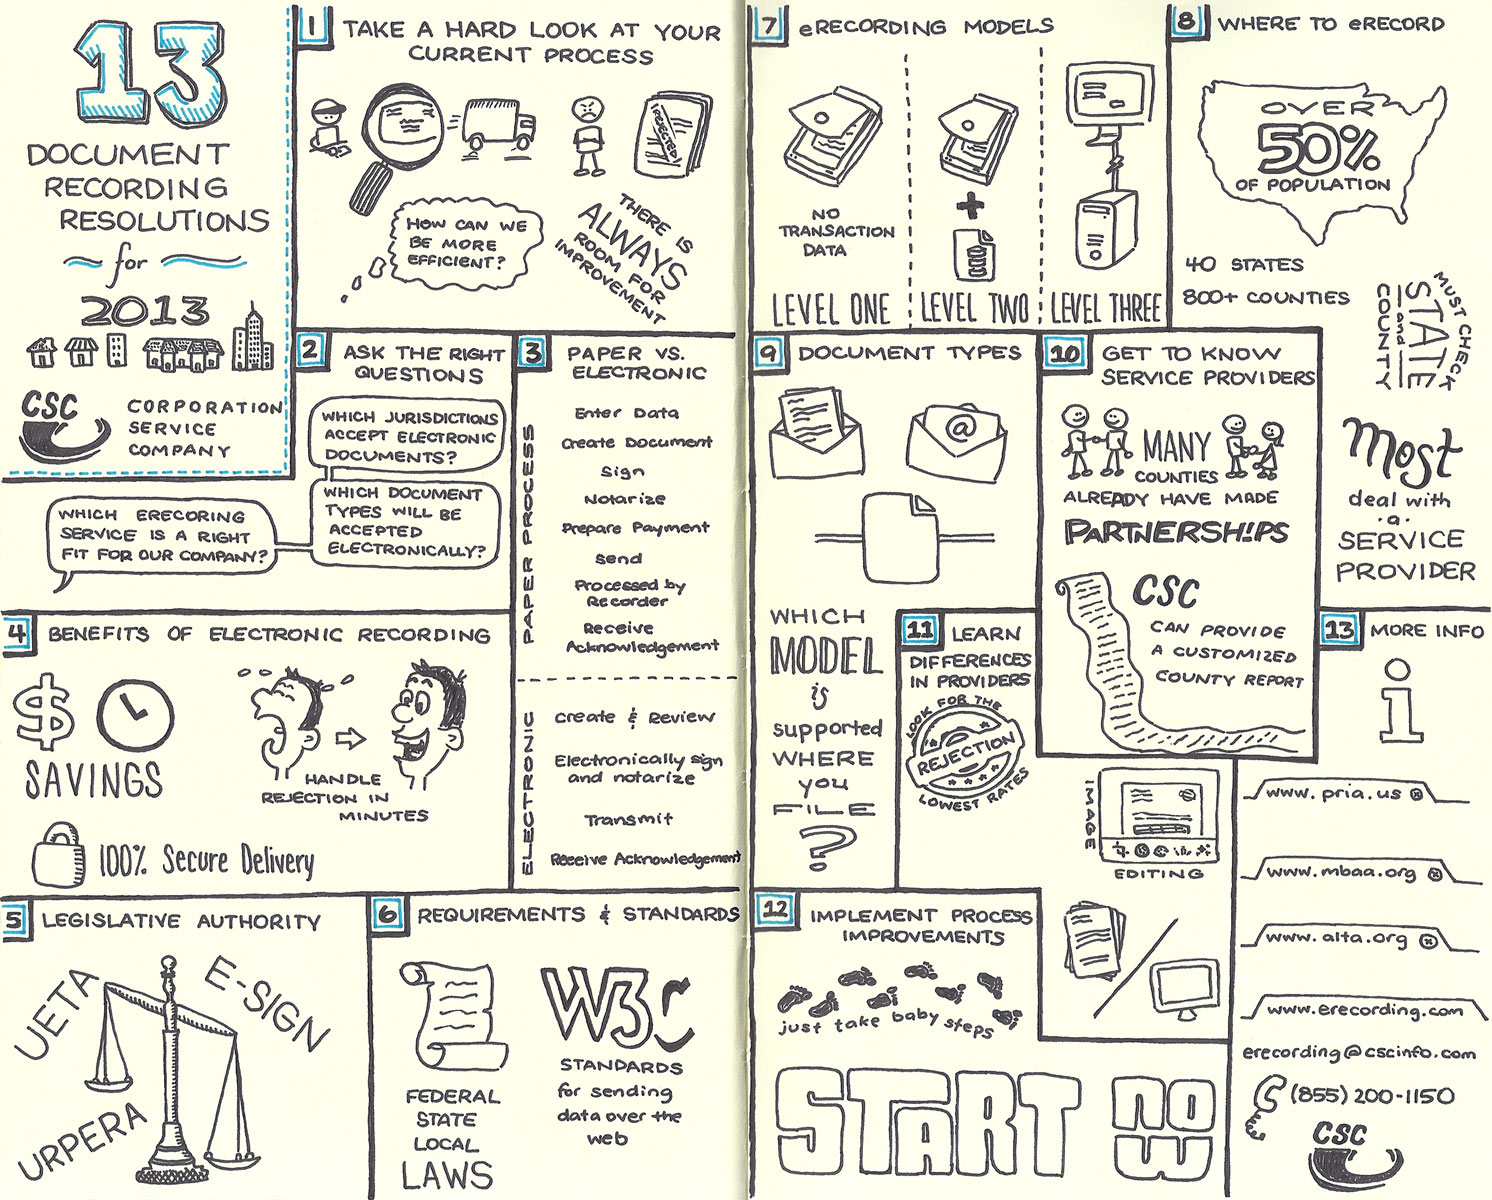 13
DOCUMENT
RECORDING
RESOLUTIONS
for
2013
CSC
CORPORATION
SERVICE
COMPANY
1
TAKE A HARD LOOK AT YOUR
CURRENT PROCESS
REJECTED!
HOW CAN WE
BE MORE
EFFICIENT?
THERE IS
ALWAYS
ROOM FOR
IMPROVEMENT
2
ASK THE RIGHT
QUESTIONS
WHICH JURISDICTIONS
ACCEPT ELECTRONIC
DOCUMENTS?
WHICH DOCUMENT
TYPES WILL BE
ACCEPTED
ELECTRONICALLY?
WHICH ERECORING
SERVICE IS A RIGHT
FIT FOR OUR COMPANY?
3
PAPER VS.
ELECTRONIC
PAPER PROCESS
Enter Data
Create Document
Sign
Notarize
Prepare Payment
Send
Processed by
Recorder
Receive
Acknowledgement
ELECTRONIC
Create & Review
Electronically sign
and notarize
Transmit
Receive Acknowledgement
4
BENEFITS OF ELECTRONIC RECORDING
$
SAVINGS
HANDLE
REJECTION IN
MINUTES
100% Secure Delivery
5
LEGISLATIVE AUTHORITY
UETA
E-SIGN
URPERA
6
REQUIREMENTS & STANDARDS
FEDERAL
STATE
LOCAL
LAWS
W3C
STANDARDS
for sending
data over the
web
7
eRECORDING MODELS
NO
TRANSACTION
DATA
LEVEL ONE
+
LEVEL TWO
LEVEL THREE
8
WHERE TO eRECORD
OVER
50%
OF POPULATION
40 STATES
800+ COUNTIES
MUST CHECK
STATE
and
COUNTY
Most
deal with
a
SERVICE
PROVIDER
9
DOCUMENT TYPES
@
WHICH
MODEL
is
supported
WHERE
you
FILE
?
10
GET TO KNOW
SERVICE PROVIDERS
MANY
COUNTIES
ALREADY HAVE MADE
PARTNERSHIPS
CSC
CAN PROVIDE
A CUSTOMIZED
COUNTY REPORT
11
LEARN
DIFFERENCES
IN PROVIDERS
LOOK FOR THE
REJECTION
LOWEST RATES
IMAGE
EDITING
12
IMPLEMENT PROCESS
IMPROVEMENTS
just take baby steps
START
NOW
13
MORE INFO
i
www.pria.us
www.mbaa.org
www.alta.org
www.erecording.com
erecording@cscinfo.com
(855) 200-1150
CSC